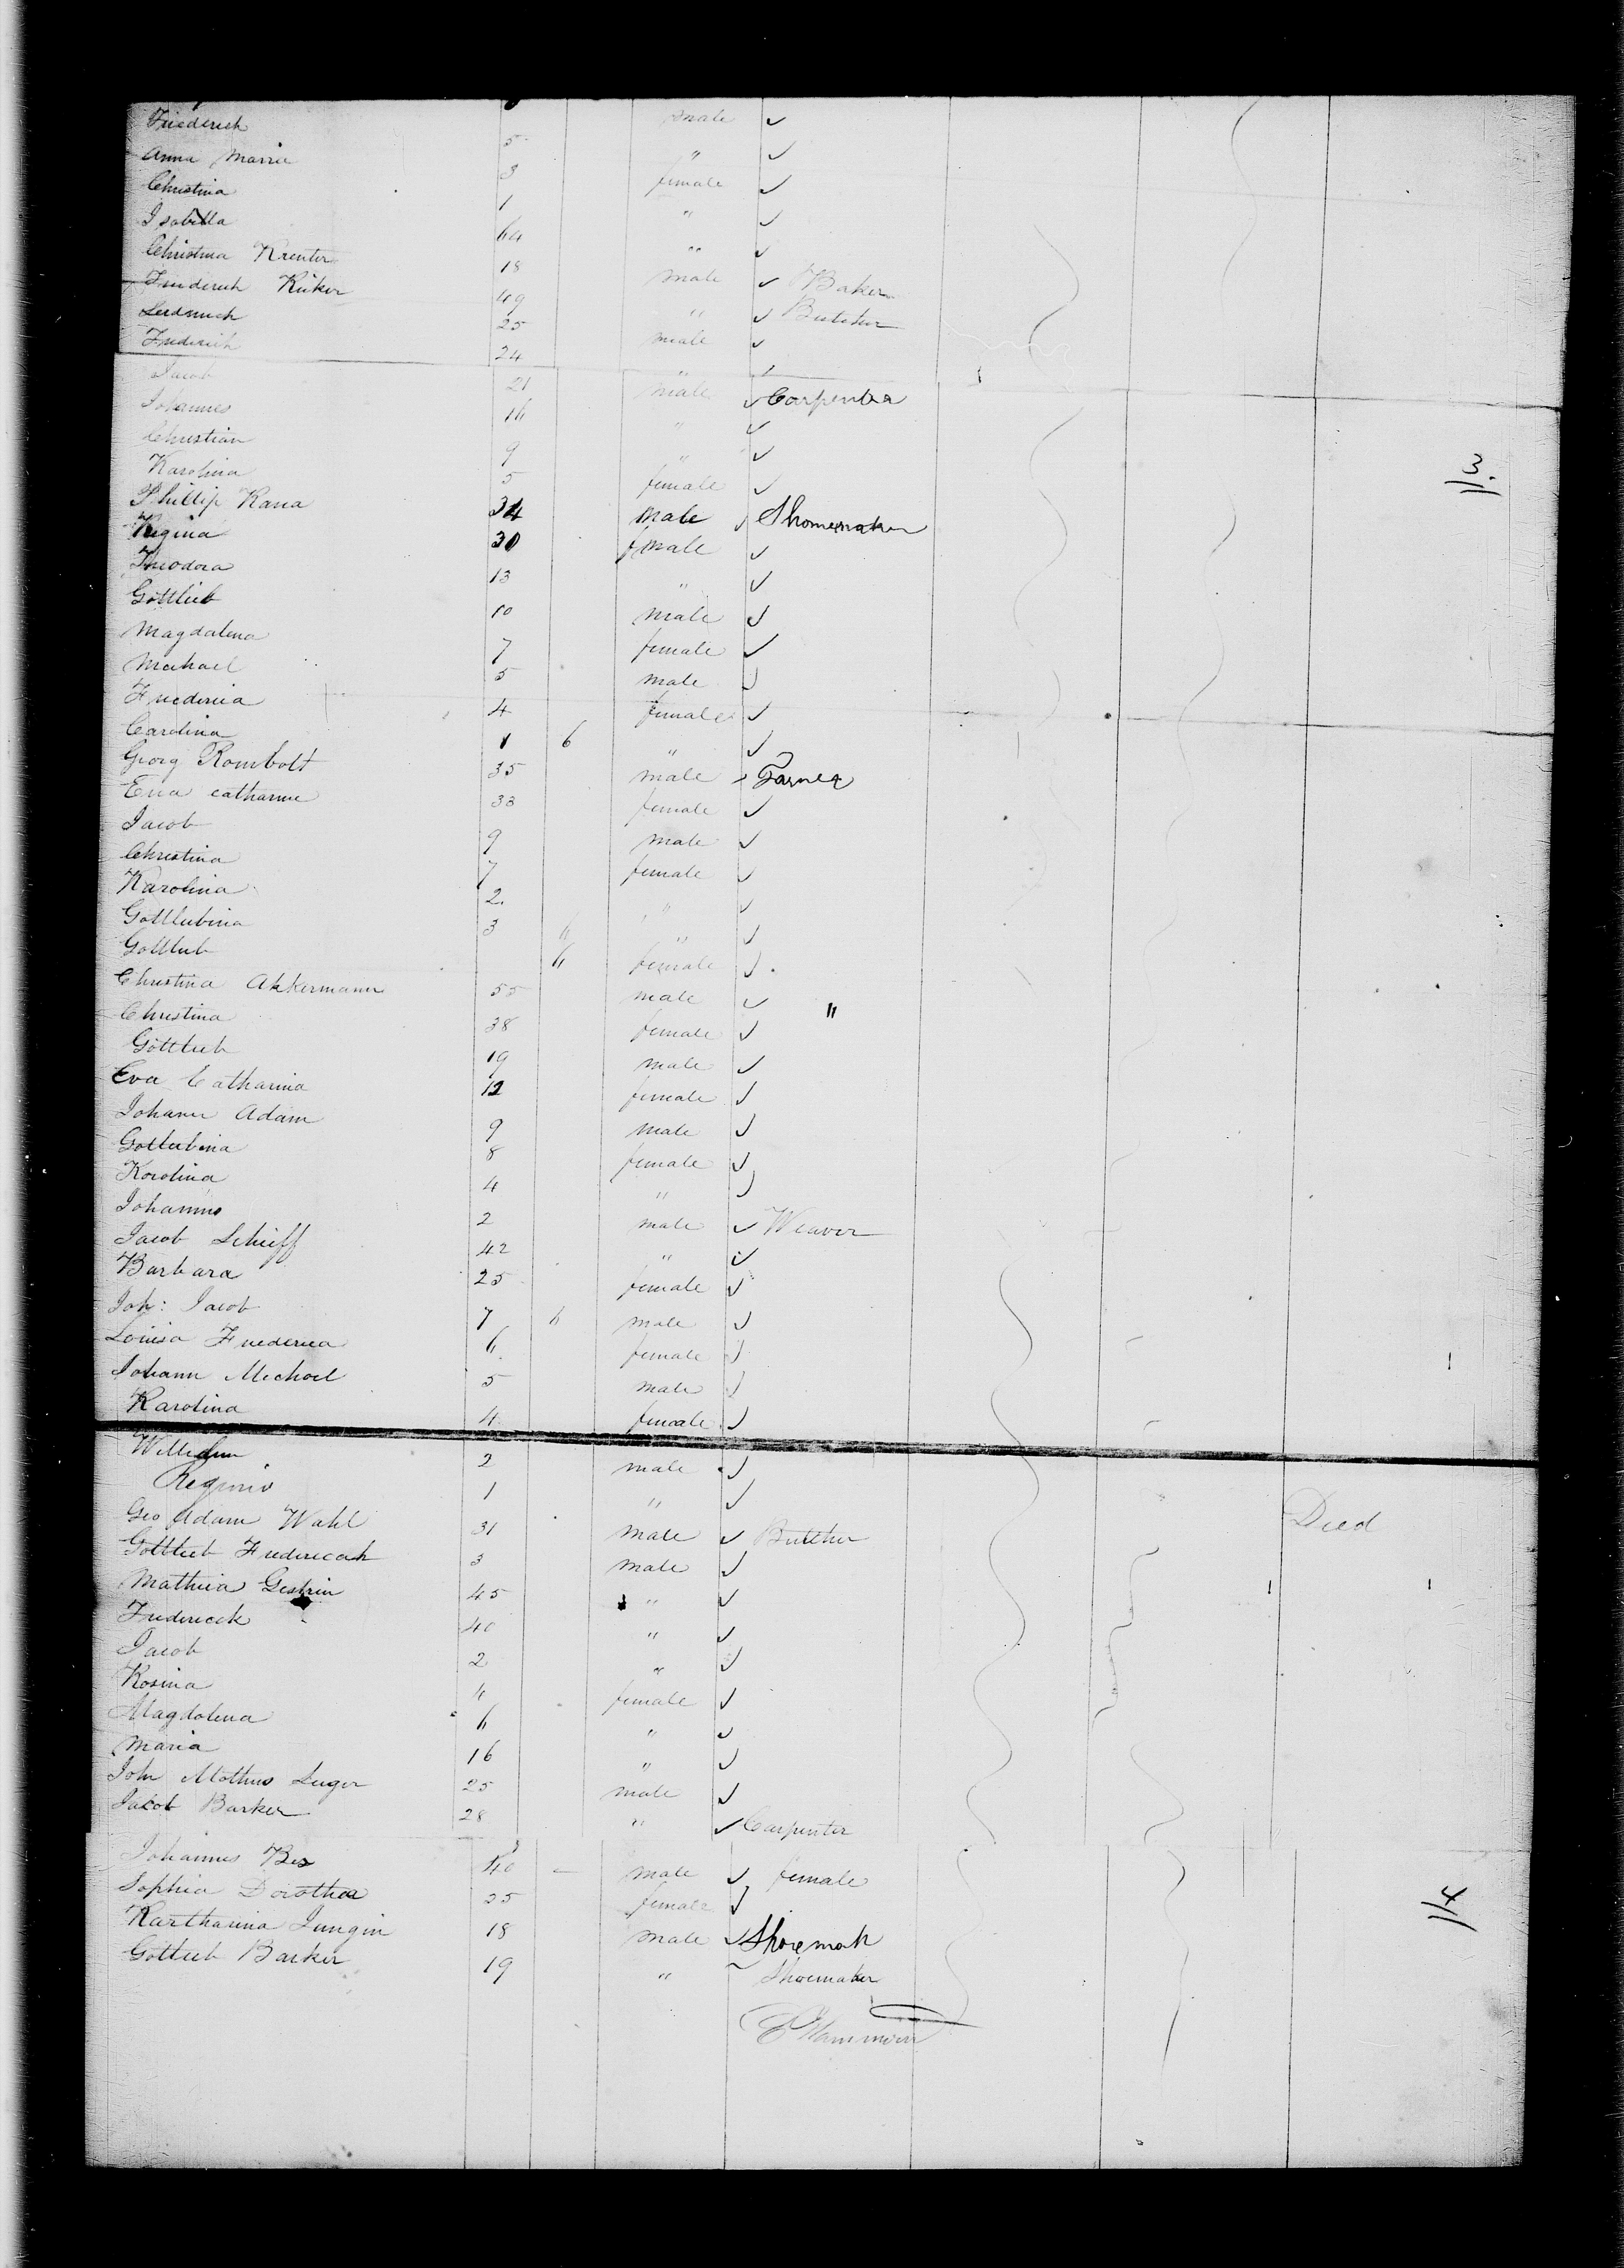 Friederich male
Anna Maria 5 "
Christina 3 female
Isabella 1 "
Christina Kreuter 64 "
Friederich Rüker 18 male Baker
49 " Butcher
Friederich 25 male
24 "
Jacob 21 male Carpenter
Johannes 16 "
Christian 9 "
Karolina 5 female
Phillip Kana 34 male Shomemaker
Regina 30 female
Theodora 13 "
Gottlieb 10 male
Magdalena 7 female
Michael 5 male
Friederica 4 female
Carolina 1 6 "
Georg Rombolt 35 male Farmer
Eva catharine 33 female
Jacob 9 male
Christina 7 female
Karolina 2. "
Gottliebina 3 "
Gottlieb 6 female
Christina Akkermann 55 male "
Christina 38 female
Gottlieb 19 male
Eva Catharina 12 female
Johann Adam 9 male
Gottliebina 8 female
Karolina 4 "
Johannes 2 male Weaver
Jacob Schieff 42 "
Barbara 25 female
Joh: Jacob 7 6 male
Louisa Friederica 6 female
Johann Michael 5 male
Karolina 4 female
Wilhelm 2 male
Regina 1 "
Geo Adam Wahl 31 male Butcher Died
Gottlieb Friederich 3 male
Mathia 45 "
Friederick 40 "
Jacob 2 "
Rosina 4 female
Magdalena 6 "
Maria 16 "
John Mathus Luger 25 male
Jacob Barker 28 " Carpenter
Johannes Bes 40 male female
Sophia Dorothea 25 female
Kartharina Jungin 18 male Shoemak
Gottlieb Barker 19 " Shoemaker
3.
4